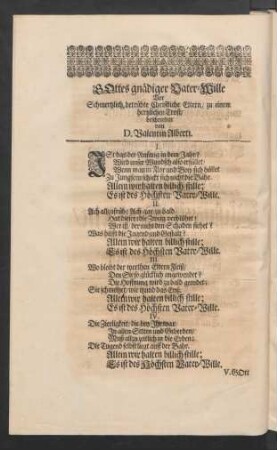 GOttes gnädiger Vater-Wille
Schmertzlich betrübte Christliche Eltern, zu einem
hertzlichen Trost,
beschrieben
von
D. Valentin Alberti.
I.
Ist das der Anfang in dem Jahr?
Wird unser Wundsch also erfüllet?
Wenn man in Flor und Boy sich hüllet
Zu Jungfern schickt sich nicht die Bahr.
Allein wir halten billich stille;
Es ist des Höchsten Vater-Wille.
II.
Ach allzufrühe! Ach gar zu bald
Wer ist, der nicht den Schaden siehet?
Was hilfft die Jugend und Gestalt?
Allein wir halten billich stille;
Es ist des Höchsten Vater-Wille.
III.
Wo bleibt der werthen Eltern Fleiß/
Den Sie so glücklich angewendet?
Die Hoffnung wird zu bald geendet:
Allein wir halten billich stille;
Es ist des Höchsten Vater-Wille.
IV.
Die Zierligkeit, die bey Ihr war
In allen Sitten und Geberden/
Muß allzu zeitlich in die Erden:
Die Tugend selbst liegt auff der Bahr.
Allein wir halten billich stille;
Es ist des Höchsten Vater-Wille.
V. GOtt